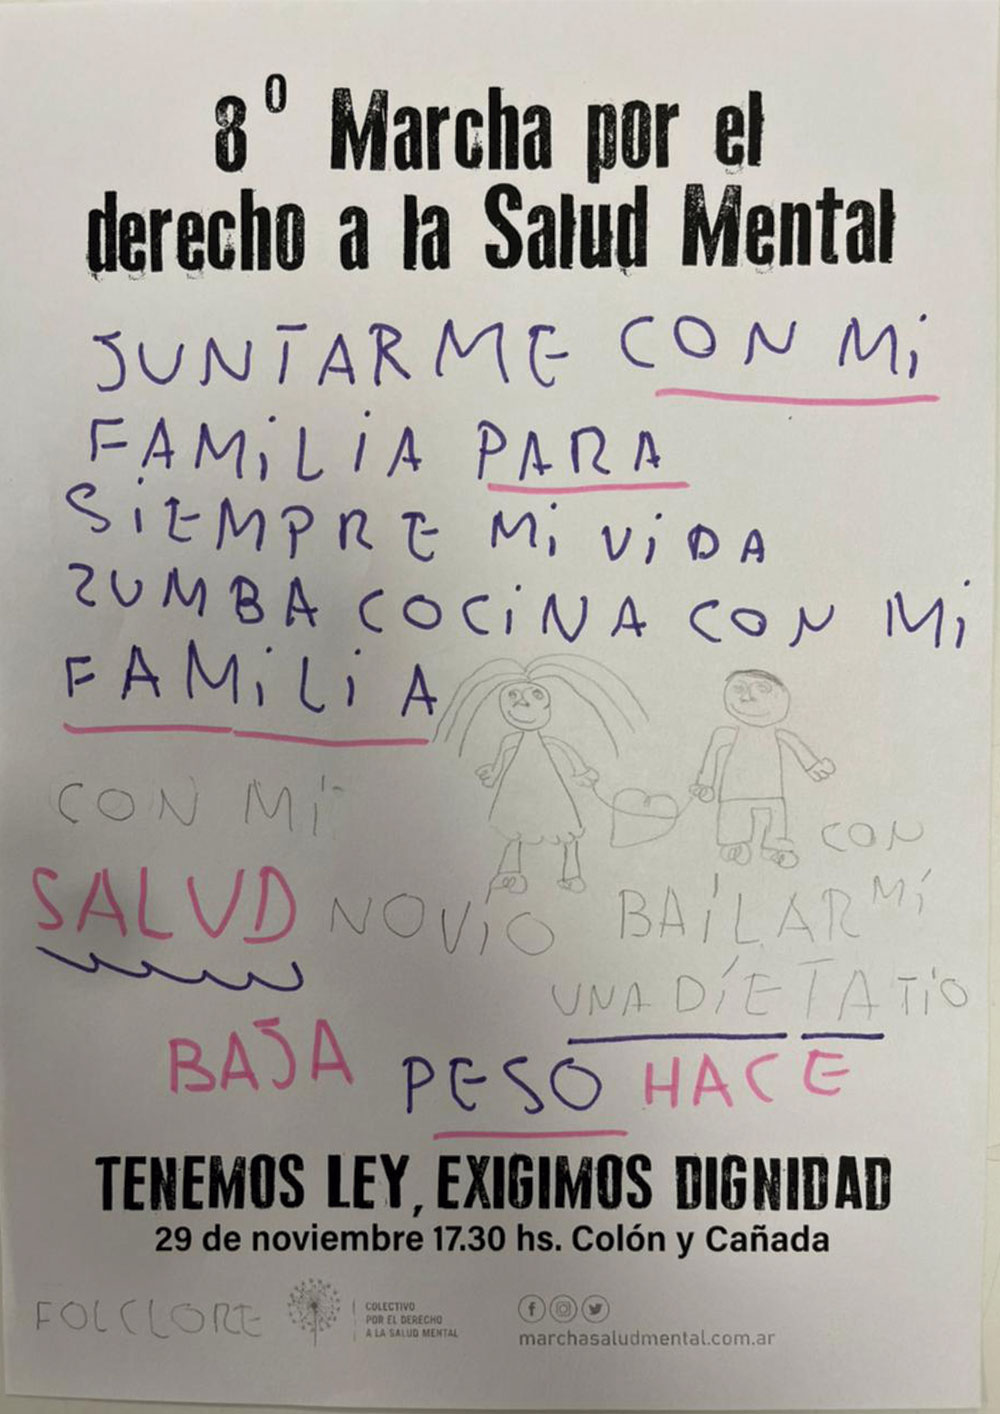 8º Marcha por el
derecho a la Salud Mental
JUNTARME CON Mi
FAMiLiA PARA
SiEMPRE Mi ViDA
ZUMBA COCiNA CON Mi
FAMiLiA
CON MÍ
CON
SALUD NOVÍO BAÍLAR MÍ
UNA DÍETA TÍO
BAJA PESO HACE
TENEMOS LEY, EXIGIMOS DIGNIDAD
29 de noviembre 17.30 hs. Colón y Cañada
FOLCLORE
COLECTIVO
POR EL DERECHO
A LA SALUD MENTAL
marchasaludmental.com.ar